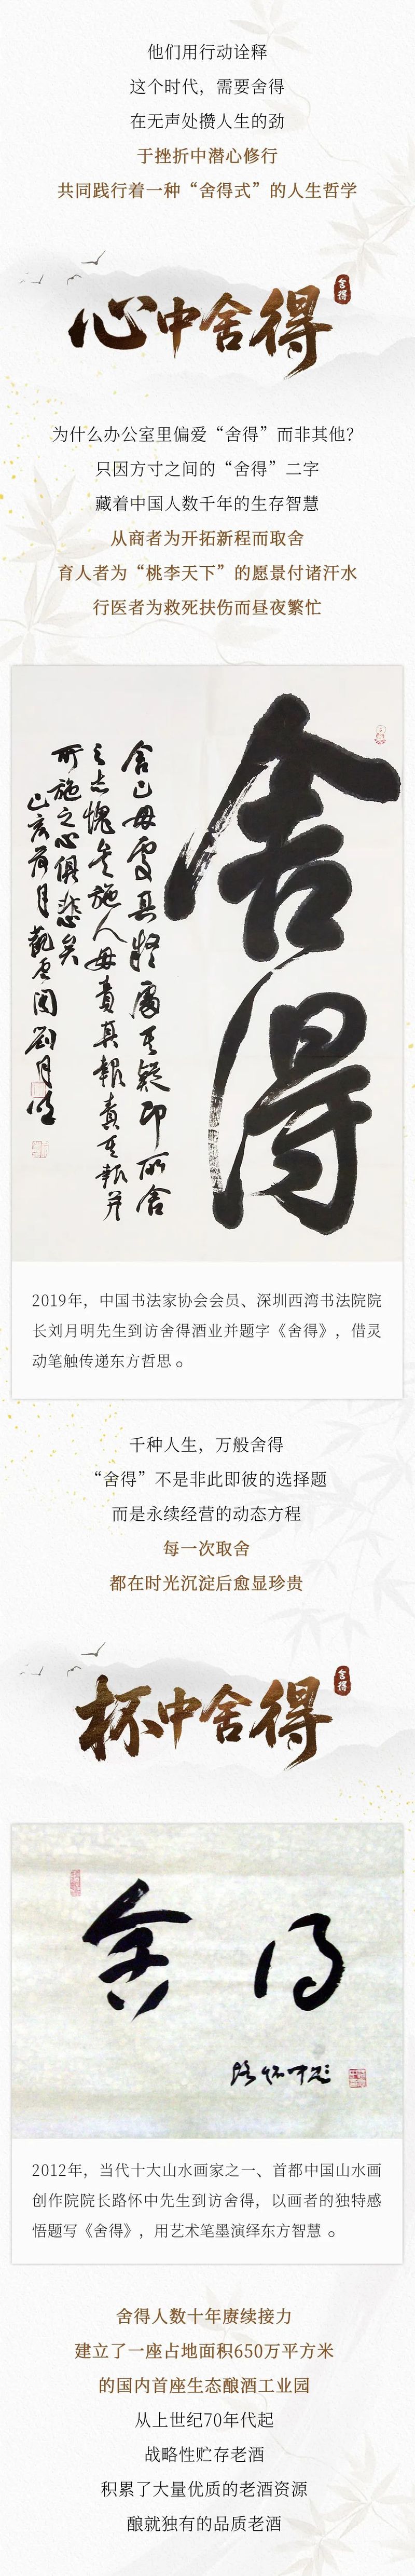 他们用行动诠释
这个时代，需要舍得
在无声处攒人生的劲
于挫折中潜心修行
共同践行着一种“舍得式”的人生哲学
心中舍得
舍得
为什么办公室里偏爱“舍得”而非其他？
只因方寸之间的“舍得”二字
藏着中国人数千年的生存智慧
从商者为开拓新程而取舍
育人者为“桃李天下”的愿景付诸汗水
行医者为救死扶伤而昼夜繁忙
舍得
舍己毋处其疑处其疑即所舍
之志愧矣施人毋责其报责其报并
所施之心俱悲矣
己亥荷月 刘月明
2019年，中国书法家协会会员、深圳西湾书法院院
长刘月明先生到访舍得酒业并题字《舍得》，借灵
动笔触传递东方哲思。
千种人生，万般舍得
“舍得”不是非此即彼的选择题
而是永续经营的动态方程
每一次取舍
都在时光沉淀后愈显珍贵
杯中舍得
舍得
舍得
路怀中题
2012年，当代十大山水画家之一、首都中国山水画
创作院院长路怀中先生到访舍得，以画者的独特感
悟题写《舍得》，用艺术笔墨演绎东方智慧。
舍得人数十年赓续接力
建立了一座占地面积650万平方米
的国内首座生态酿酒工业园
从上世纪70年代起
战略性贮存老酒
积累了大量优质的老酒资源
酿就独有的品质老酒